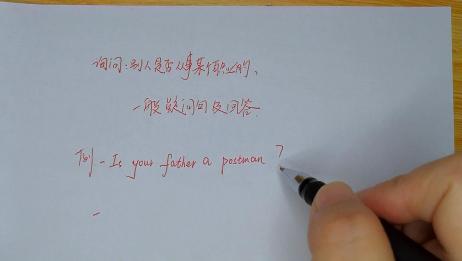 询问:别人是否从事某个职业的、
一般疑问句及回答.
例 - Is your father a postman ?
-